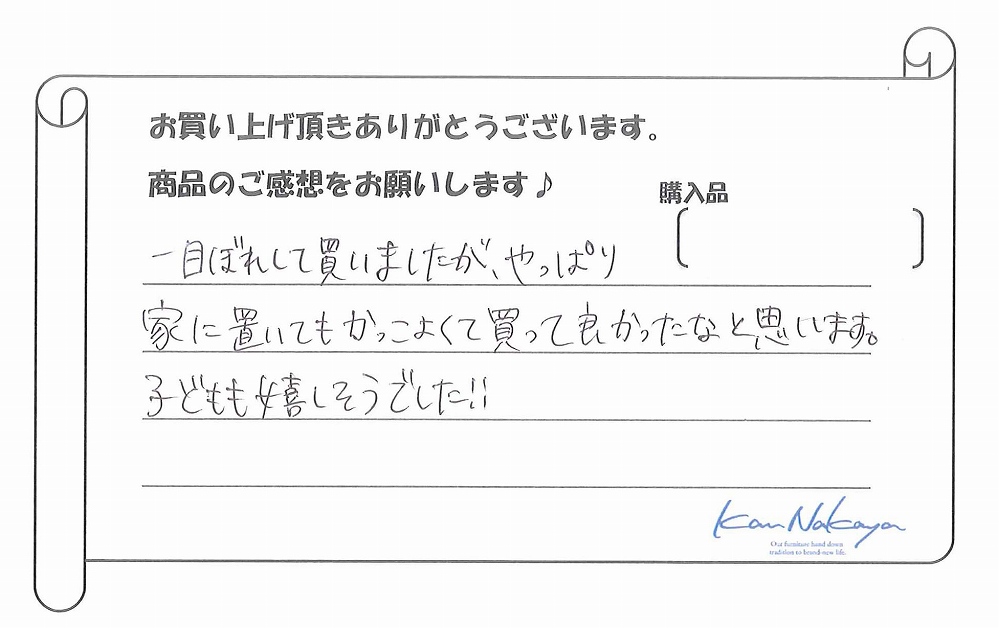 お買い上げ頂きありがとうございます。
商品のご感想をお願いします♪
購入品
一目ぼれして買いましたが、やっぱり
家に置いてもかっこよくて買って良かったなと思います。
子どもも嬉しそうでした!!
Kan Nakaya
Our furniture hand down
tradition to brand-new life.